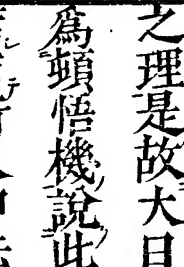 之理是故大日
爲頓悟機說此